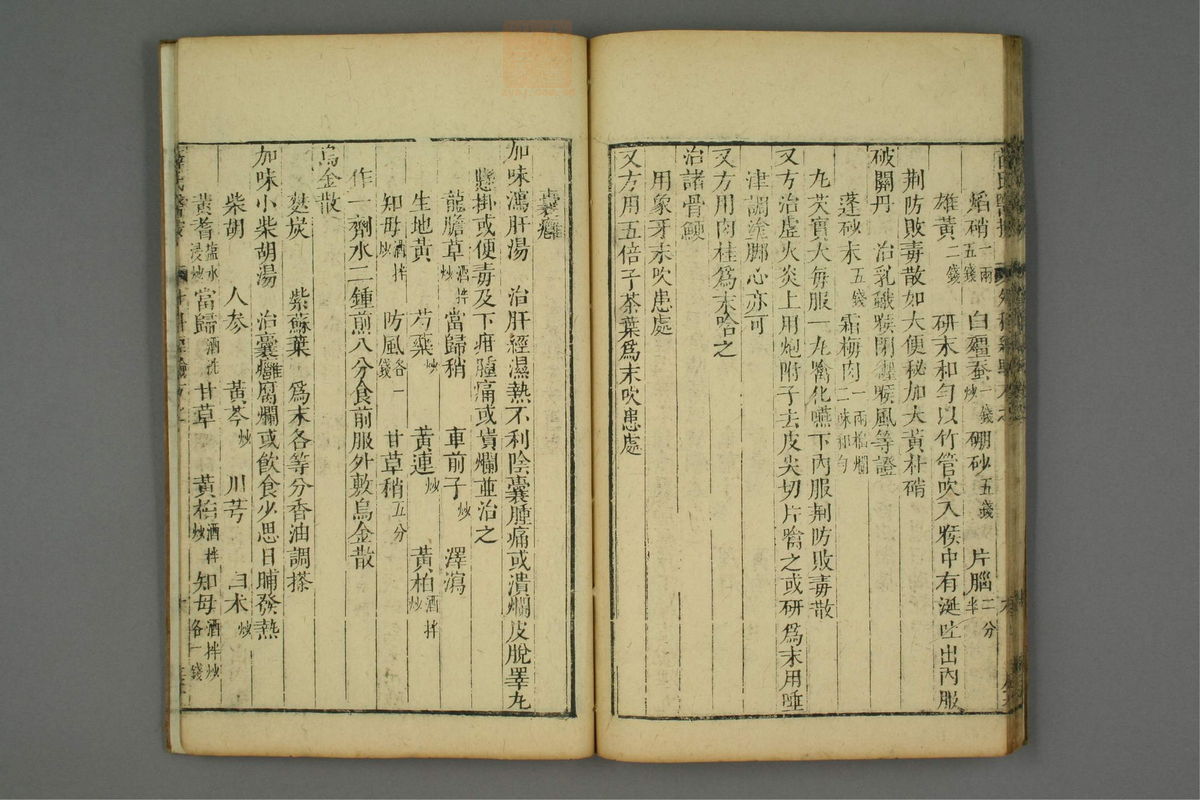 焰硝一兩五錢 白殭蚕一錢炒 硼砂五錢 片腦二分半
雄黃二錢 研末和勻以竹管吹入喉中有涎吐出內服
荆防敗毒散如大便秘加大黃朴硝
破關丹 治乳蛾喉閉纏喉風等證
蓬砂末五錢 霜梅肉一兩搗爛二味和勻
丸芡實大每服一丸噙化嚥下內服荆防敗毒散
又方治虛火炎上用炮附子去皮尖切片噙之或研爲末用唾
津調塗脚心亦可
又方用肉桂爲末噙之
治諸骨鯁
用象牙末吹患處
又方用五倍子茶葉爲末吹患處
囊癰
加味瀉肝湯 治肝經濕熱不利陰囊腫痛或潰爛皮脫睪丸
懸掛或便毒及下疳腫痛或潰爛並治之
龍膽草酒拌炒 當歸稍 車前子炒 澤瀉
生地黃 芍藥炒 黃連炒 黃柏酒拌炒
知母酒拌炒 防風各一錢 甘草稍五分
作一劑水二鍾煎八分食前服外敷烏金散
烏金散
麩炭 紫蘇葉 爲末各等分香油調搽
加味小柴胡湯 治囊癰腐爛或飲食少思日晡發熱
柴胡 人参 黃芩炒 川芎 白术炒
黃耆鹽水浸炒 當歸酒洗 甘草 黃柏酒拌炒 知母酒拌炒各一錢